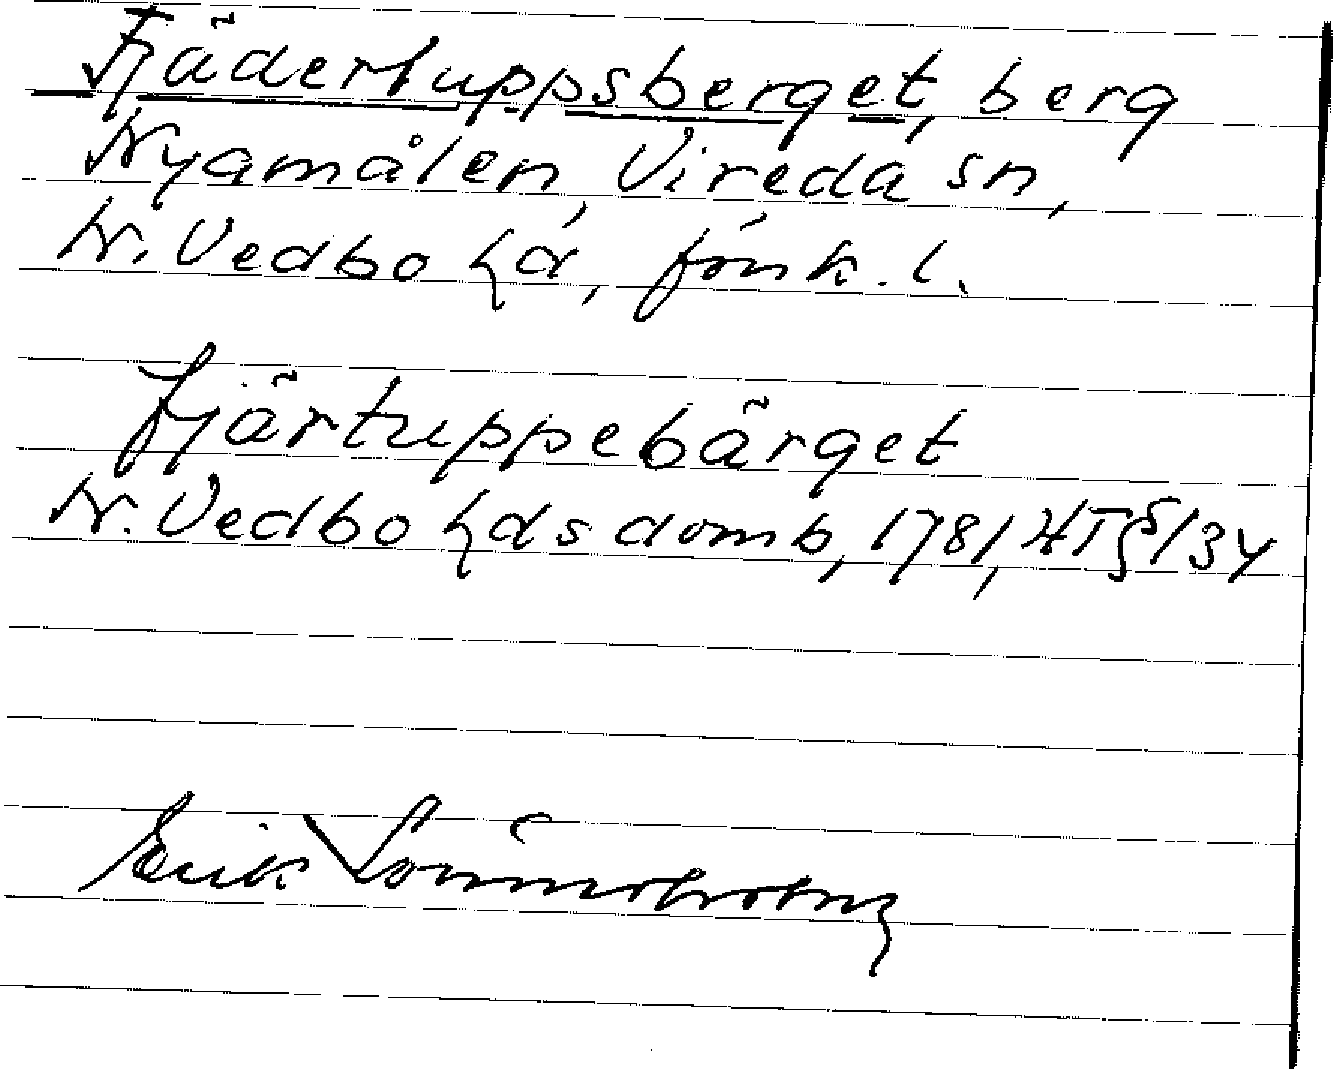 Fjädertuppsberget, berg
Nyamålen, Vireda sn,
N. Vedbo hd, Jönk. l.
fjärtuppebärget
N. Vedbo hds domb, 1781, HT § 134
Erik